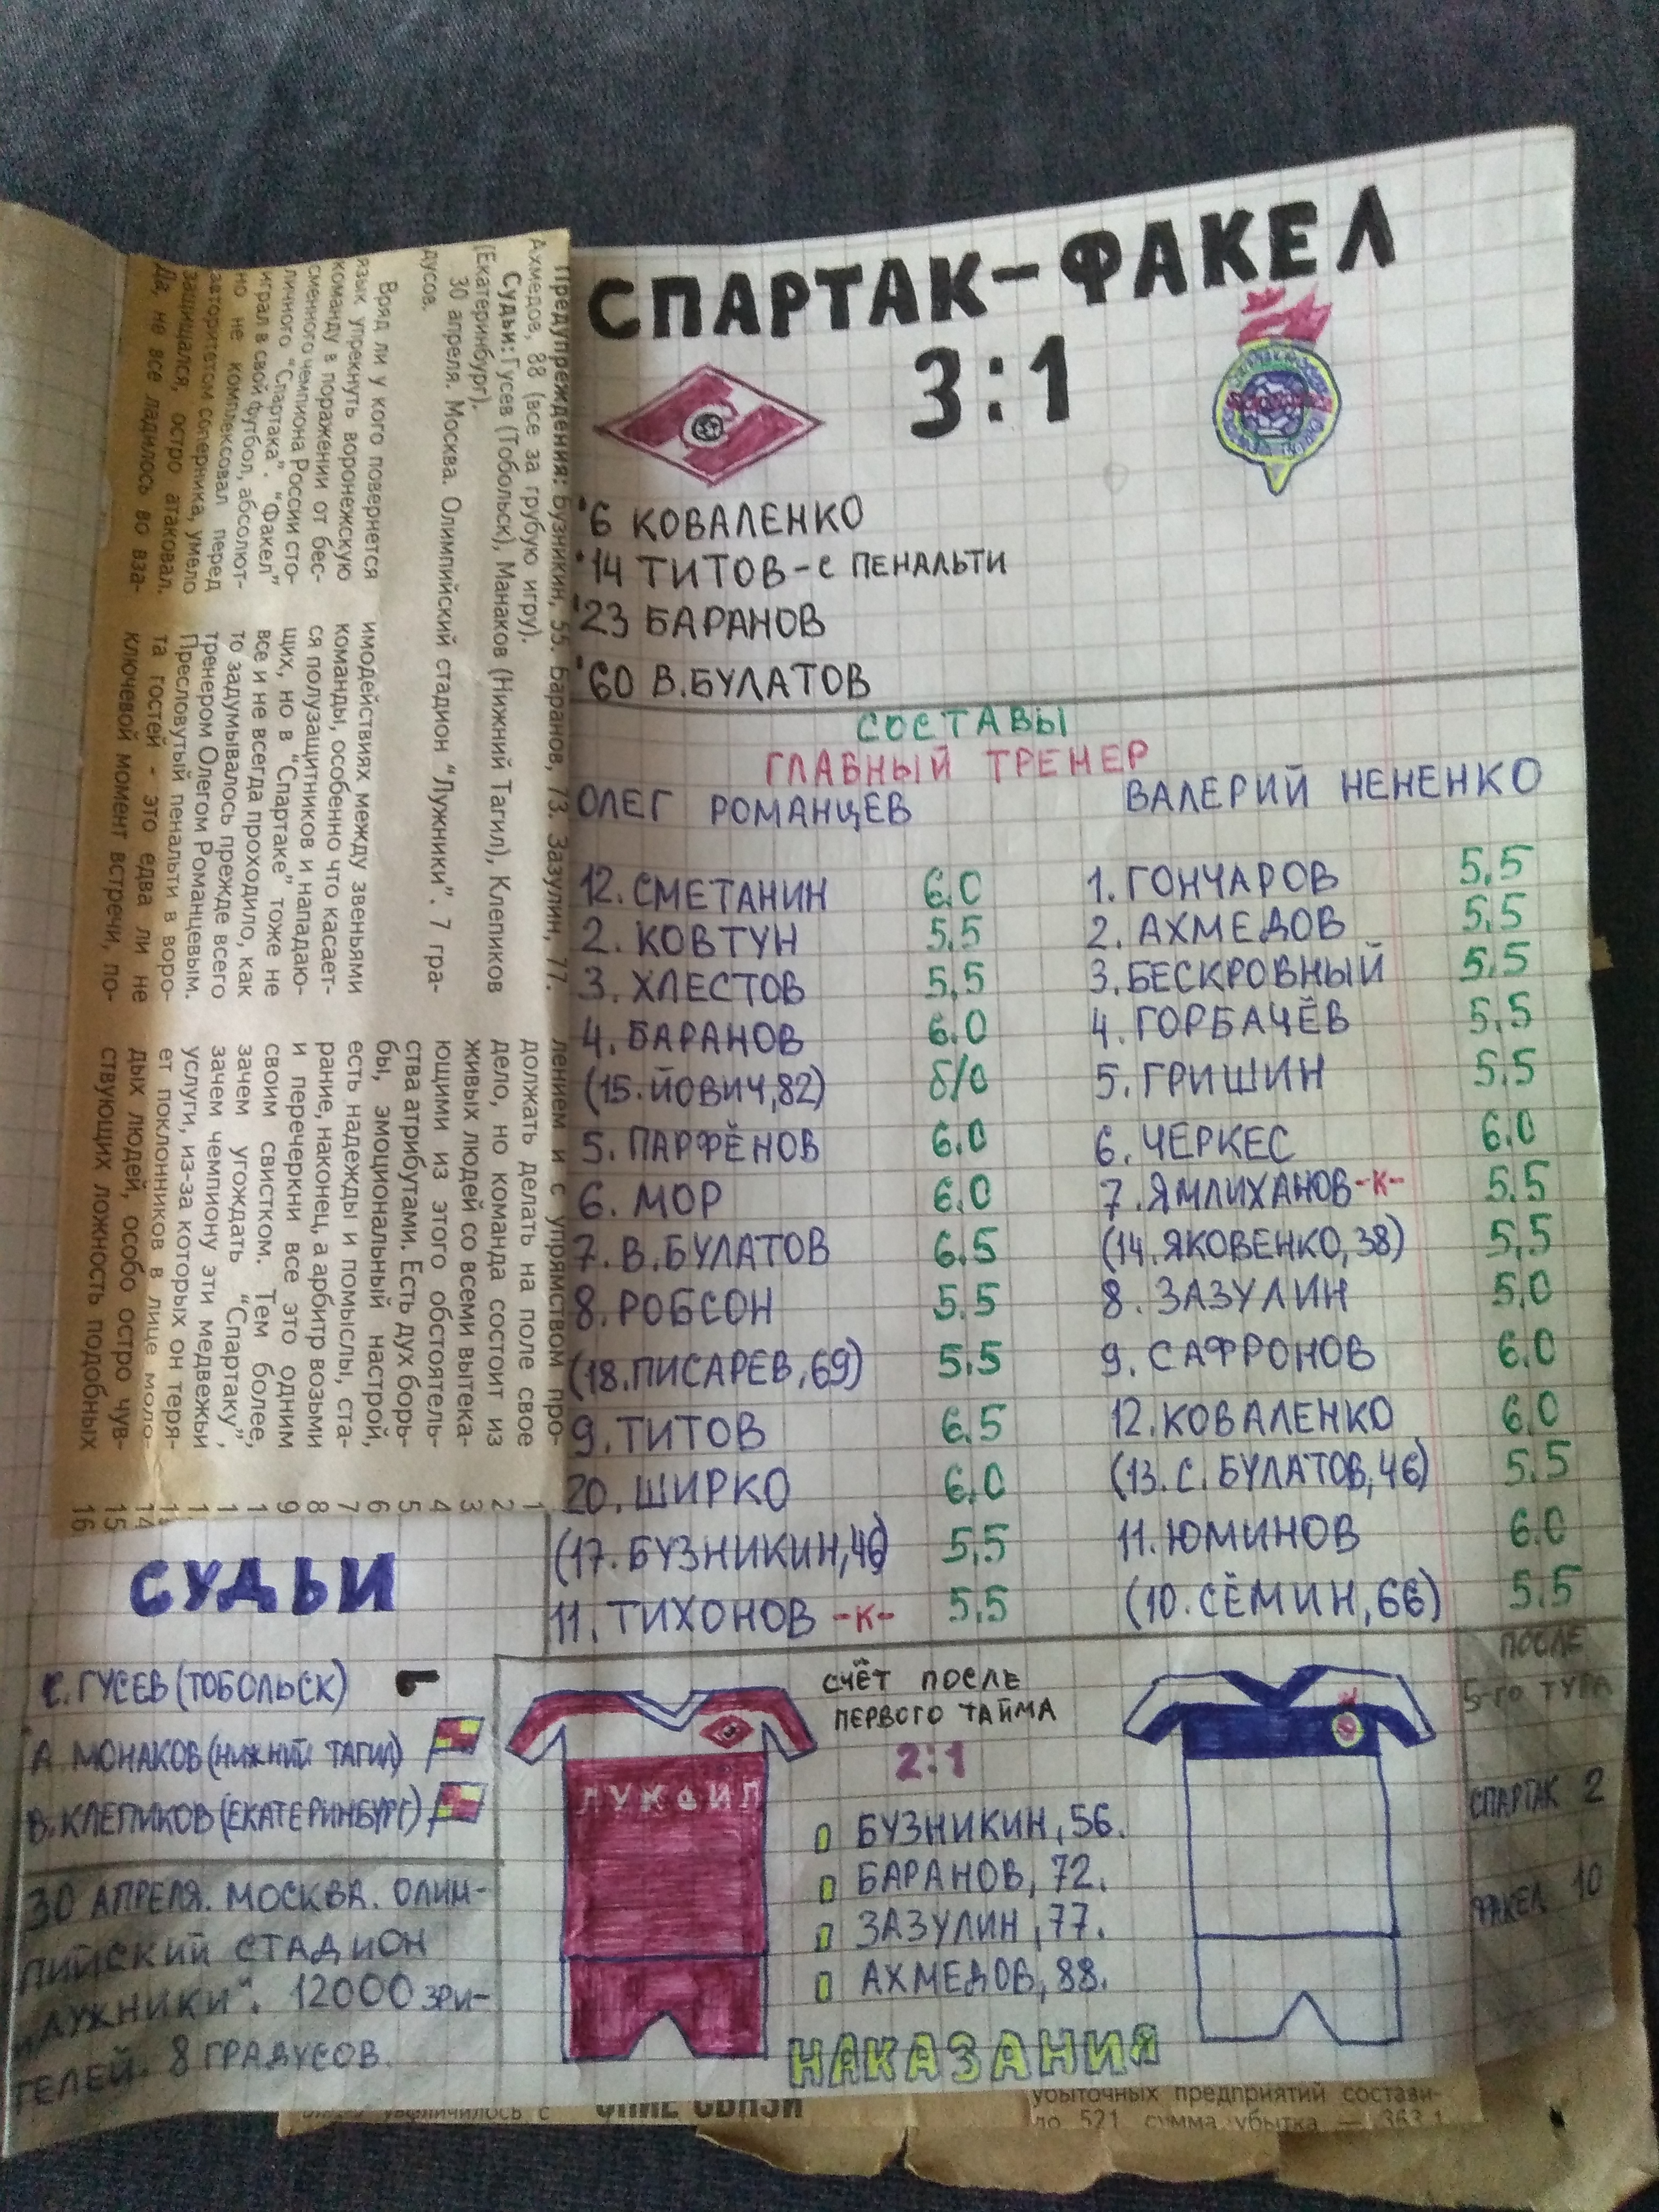 СПАРТАК-ФАКЕЛ
3:1
'6 КОВАЛЕНКО
'14 ТИТОВ-с ПЕНАЛЬТИ
'23 БАРАНОВ
'60 В.БУЛАТОВ
СОСТАВЫ
ГЛАВНЫЙ ТРЕНЕР
ОЛЕГ РОМАНЦЕВ
ВАЛЕРИЙ НЕНЕНКО
12. СМЕТАНИН 6.0
2. КОВТУН 5,5
3. ХЛЕСТОВ 5,5
4. БАРАНОВ 6.0
(15. ЙОВИЧ,82) б/о
5. ПАРФЁНОВ 6.0
6. МОР 6.0
7. В.БУЛАТОВ 6.5
8. РОБСОН 5.5
(18.ПИСАРЕВ,69) 5.5
9. ТИТОВ 6.5
20. ШИРКО 6.0
(17. БУЗНИКИН,46) 5,5
11. ТИХОНОВ -К- 5,5
1. ГОНЧАРОВ 5,5
2. АХМЕДОВ 5,5
3. БЕСКРОВНЫЙ 5,5
4. ГОРБАЧЁВ 5,5
5. ГРИШИН 5,5
6. ЧЕРКЕС 6.0
7. ЯМЛИХАНОВ-К- 5,5
(14.ЯКОВЕНКО,38) 5,5
8. ЗАЗУЛИН 5,0
9. САФРОНОВ 6.0
12. КОВАЛЕНКО 6.0
(13. С. БУЛАТОВ,46) 5.5
11. ЮМИНОВ 6.0
(10. СЁМИН,66) 5.5
Предупреждения: Бузникин, 55. Баранов, 73. Зазулин, 77.
Ахмедов, 88 (все за грубую игру).
Судьи: Гусев (Тобольск), Манаков (Нижний Тагил), Клепиков
(Екатеринбург).
30 апреля. Москва. Олимпийский стадион "Лужники". 7 гра-
дусов.
Вряд ли у кого повернется
язык упрекнуть воронежскую
команду в поражении от бес-
сменного чемпиона России сто-
личного "Спартака". "Факел"
играл в свой футбол, абсолют-
но не комплексовал перед
авторитетом соперника, умело
защищался, остро атаковал.
Да, не все ладилось во вза-
имодействиях между звеньями
команды, особенно что касает-
ся полузащитников и нападаю-
щих, но в "Спартаке" тоже не
все и не всегда проходило, как
то задумывалось прежде всего
тренером Олегом Романцевым.
Пресловутый пенальти в воро-
та гостей - это едва ли не
ключевой момент встречи, по-
лением и с упрямством про-
должать делать на поле свое
дело, но команда состоит из
живых людей со всеми вытека-
ющими из этого обстоятель-
ства атрибутами. Есть дух борь-
бы, эмоциональный настрой,
есть надежды и помыслы, ста-
рание, наконец, а арбитр возьми
и перечеркни все это одним
своим свистком. Тем более,
зачем угождать "Спартаку",
зачем чемпиону эти медвежьи
услуги, из-за которых он теря-
ет поклонников в лице моло-
дых людей, особо остро чув-
ствующих ложность подобных
1
2
3
4
5
6
7
8
9
1
1
1
1
14
15
16
СУДЬИ
С. ГУСЕВ (ТОБОЛЬСК)
А. МОНАКОВ (НИЖНИЙ ТАГИЛ)
В. КЛЕПИКОВ (ЕКАТЕРИНБУРГ)
30 АПРЕЛЯ. МОСКВА. ОЛИМ-
ПИЙСКИЙ СТАДИОН
„ЛУЖНИКИ". 12000 ЗРИ-
ТЕЛЕЙ. 8 ГРАДУСОВ.
ЛУКОЙЛ
СЧЁТ ПОСЛЕ
ПЕРВОГО ТАЙМА
2:1
БУЗНИКИН,56.
БАРАНОВ,72.
ЗАЗУЛИН,77.
АХМЕДОВ,88.
НАКАЗАНИЯ
ПОСЛЕ
5-ГО ТУРА
СПАРТАК 2
ФАКЕЛ 10
увеличилось с
СВЯЗИ
убыточных предприятий состави-
ло 521, сумма убытка — 363,1